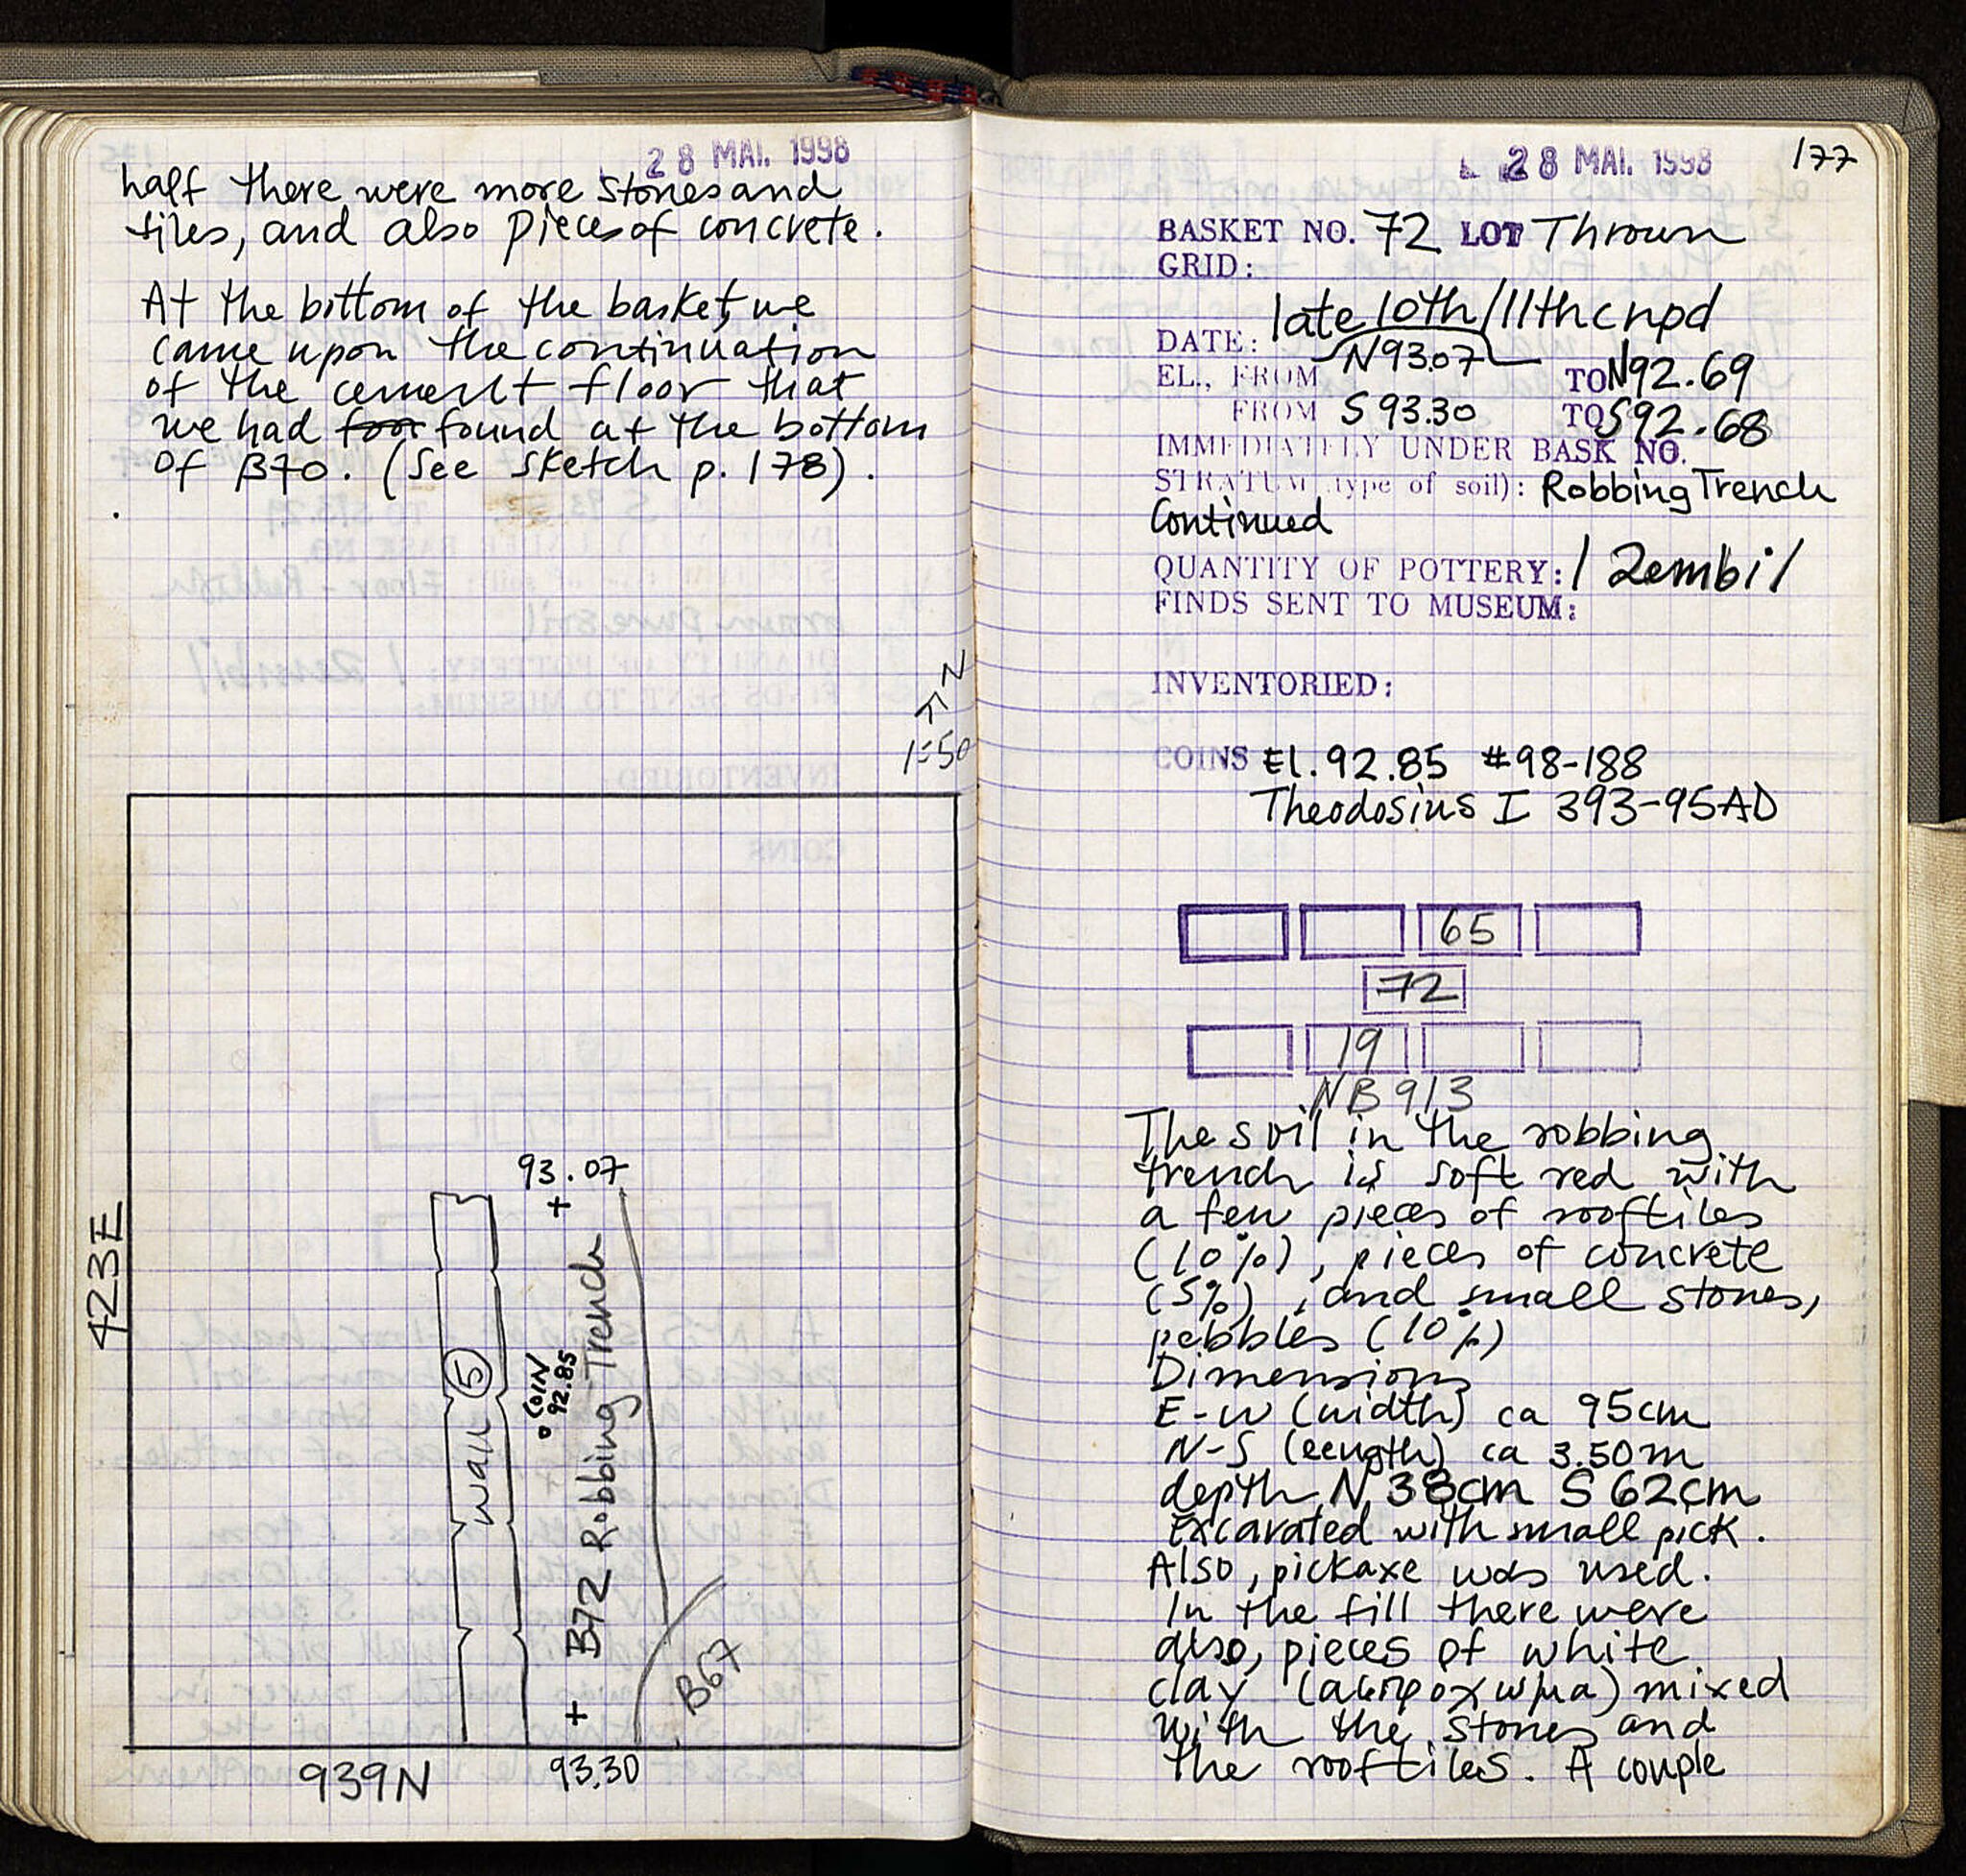 28 MAI. 1998
half there were more stones and
tiles, and also pieces of concrete.
At the bittom of the basket, we
came upon the continuation
of the cement floor that
we had foor found at the bottom
of B70. (see sketch p. 178).
N
1:50
423E
93.07
+
wall 5
COIN
92.85
B72 Robbing Trench
+
B67
939N
93.30
28 MAI. 1998
177
BASKET NO. 72 LOT Thrown
GRID:
late 10th/11thc npd
DATE:
EL., FROM N93.07 TO N92.69
FROM S 93.30 TO S92.68
IMMEDIATELY UNDER BASK NO.
STRATUM (type of soil): Robbing Trench
Continued
QUANTITY OF POTTERY: 1 Zembil
FINDS SENT TO MUSEUM:
INVENTORIED:
COINS El. 92.85 #98-188
Theodosius I 393-95AD
65
72
19
NB 913
The soil in the robbing
trench is soft red with
a few pieces of rooftiles
(10%), pieces of concrete
(5%), and small stones,
pebbles (10%)
Dimensions
E-W (width) ca 95cm
N-S (length) ca 3.50m
depth N 38cm S 62cm
Excavated with small pick.
Also, pickaxe was used.
In the fill there were
also, pieces of white
clay (ασπροχωμα) mixed
with the stones and
the rooftiles. A couple